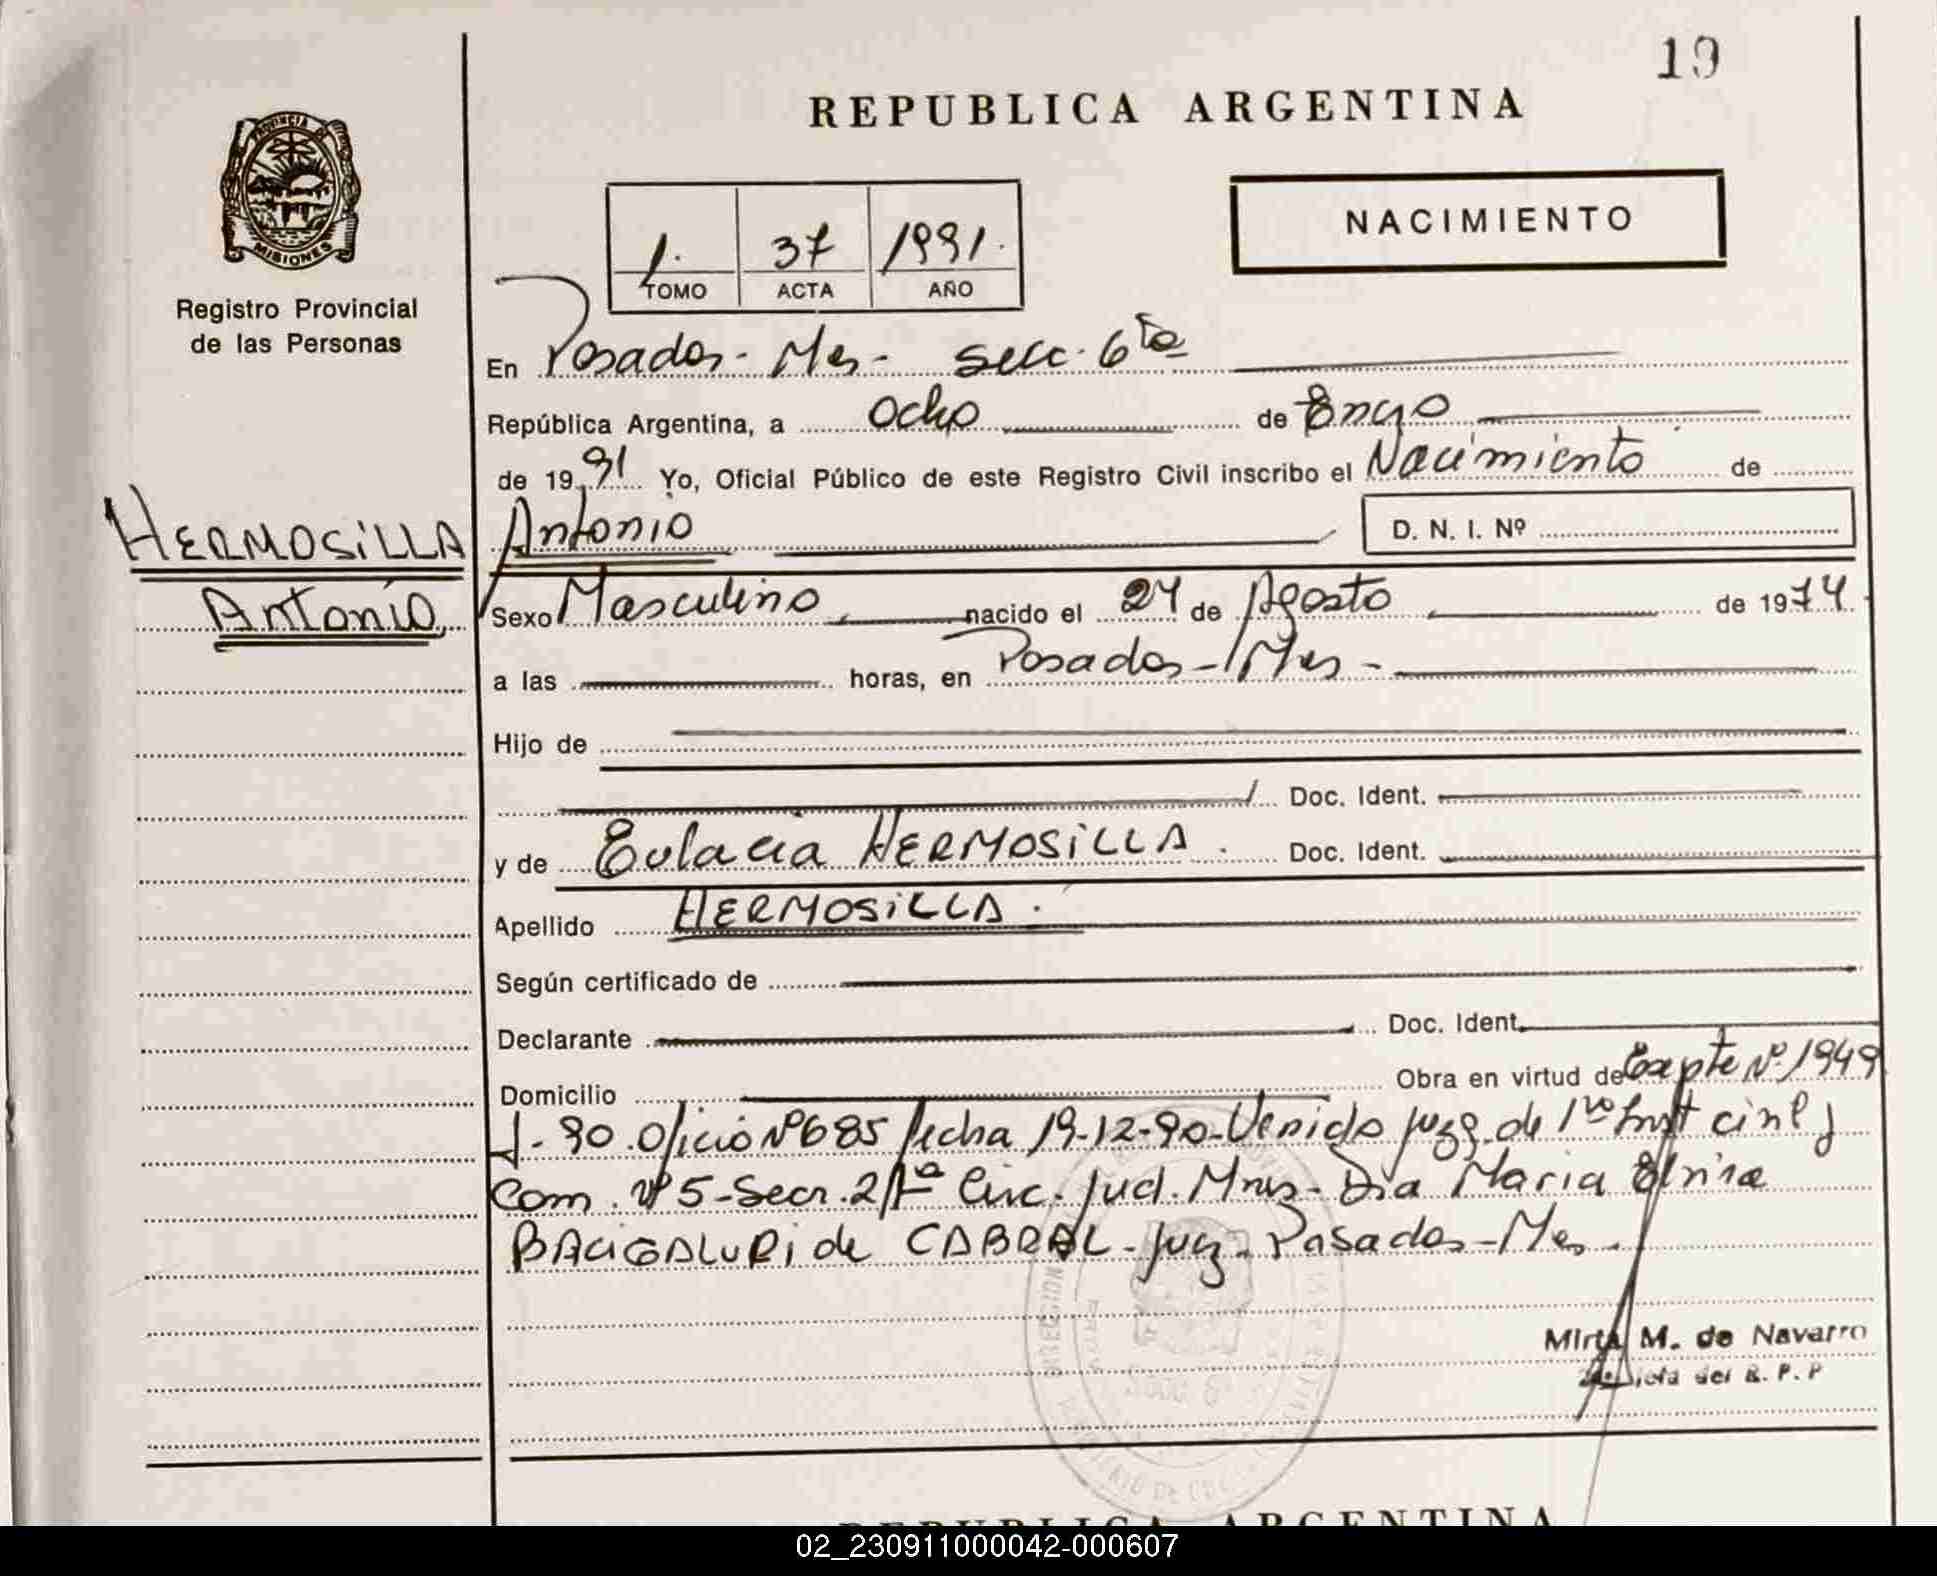 19
REPUBLICA ARGENTINA
PROVINCIA DE
MISIONES
Registro Provincial
de las Personas
NACIMIENTO
1. 37 1991.
TOMO ACTA AÑO
En Posadas - Mnes - Secc. 6ta
República Argentina, a Ocho de Enero
de 1991 Yo, Oficial Público de este Registro Civil inscribo el Nacimiento de
HERMOSILLA
Antonio D. N. I. Nº
Antonio
Sexo Masculino nacido el 24 de Agosto de 1974
a las horas, en Posadas - Mnes -
Hijo de
Doc. Ident.
y de Eulacia HERMOSILLA. Doc. Ident.
Apellido HERMOSILLA.
Según certificado de
Declarante Doc. Ident.
Domicilio Obra en virtud de Expte Nº 1949
- 90. Oficio Nº 685 fecha 19-12-90 - Venido Juzg. de 1ro Inst civil y
Com. Nº 5 - Secr. 2 / 1ª Circ. Jud. Mnes - Dra Maria Elvira
BACIGALUPI de CABRAL - Juez - Posadas - Mnes -
Mirta M. de Navarro
del R. P. P
REPUBLICA ARGENTINA
02_230911000042-000607